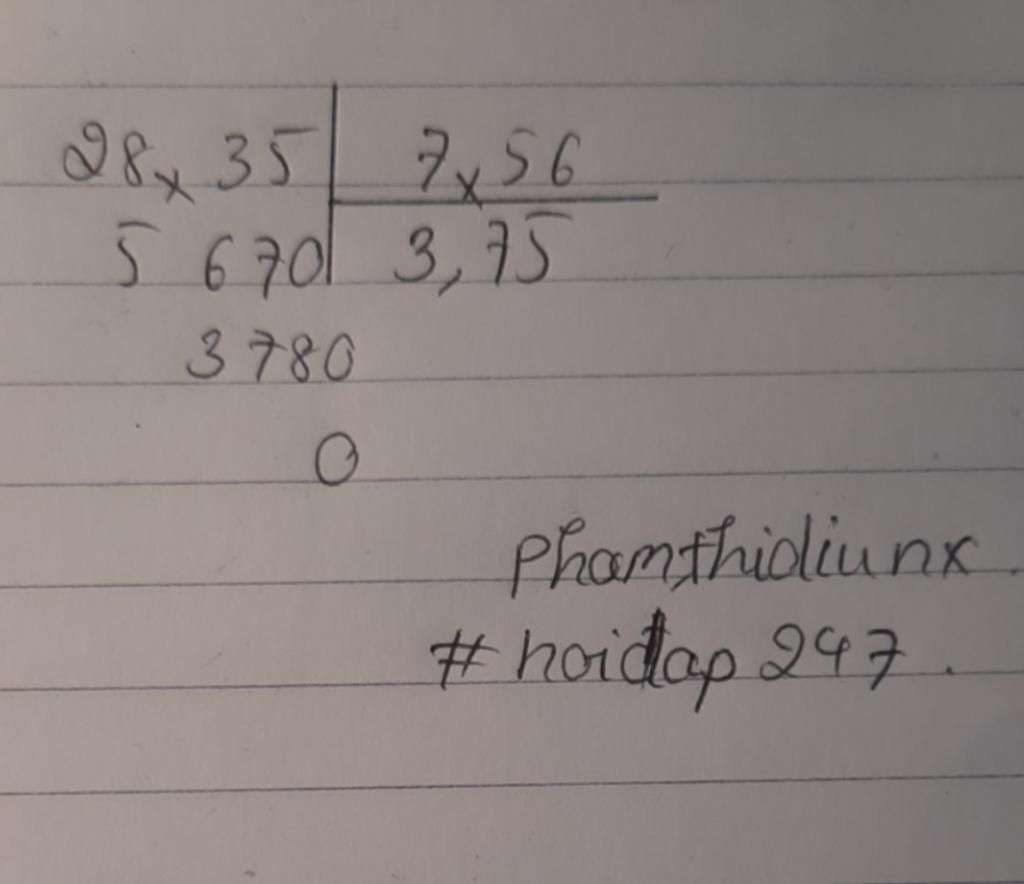 28x 35 7x56
5 670 3,75
3780
0
phamthidiunx.
#hoidap 247.